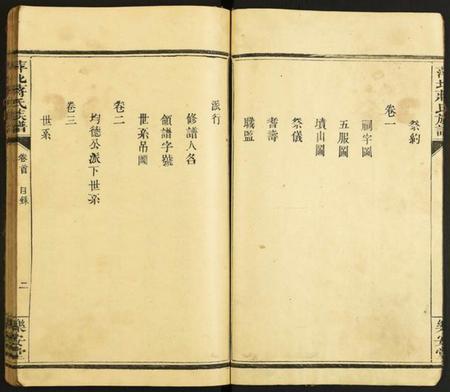 祭約
卷一
祠宇圖
五服圖
墳山圖
祭儀
耆壽
職監
樂安堂
派行
修譜人名
領譜字號
世系吊圖
卷二
均德公派下世系
卷三
世系
萍北蔣氏族譜
卷首
目錄
二
樂安堂